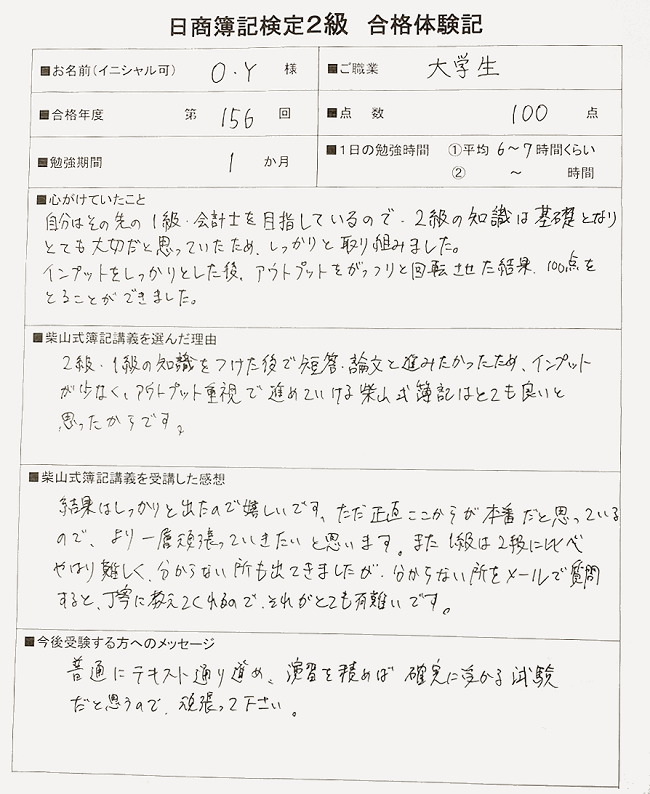 日商簿記検定2級 合格体験記
■お名前(イニシャル可) O.Y 様 ■ご職業 大学生
■合格年度 第 156 回 ■点 数 100 点
■勉強期間 1 か月 ■1日の勉強時間 ①平均 6〜7 時間くらい
② 〜 時間
■心がけていたこと
自分はその先の1級・会計士を目指しているので、2級の知識は基礎となり
とても大切だと思っていたため、しっかりと取り組みました。
インプットをしっかりとした後、アウトプットをがっつりと回転させた結果、100点を
とることができました。
■柴山式簿記講義を選んだ理由
2級・1級の知識をつけた後で短答・論文と進みたかったため、インプット
が少なく、アウトプット重視で進めていける柴山式簿記はとても良いと
思ったからです。
■柴山式簿記講義を受講した感想
結果はしっかりと出たので嬉しいです。ただ正直ここからが本番だと思っている
ので、より一層頑張っていきたいと思います。また1級は2級に比べ
やはり難しく、分からない所も出てきましたが、分からない所をメールで質問
すると、丁寧に教えてくれるので、それがとても有難いです。
■今後受験する方へのメッセージ
普通にテキスト通り進め、演習を積めば確実に受かる試験
だと思うので、頑張って下さい。